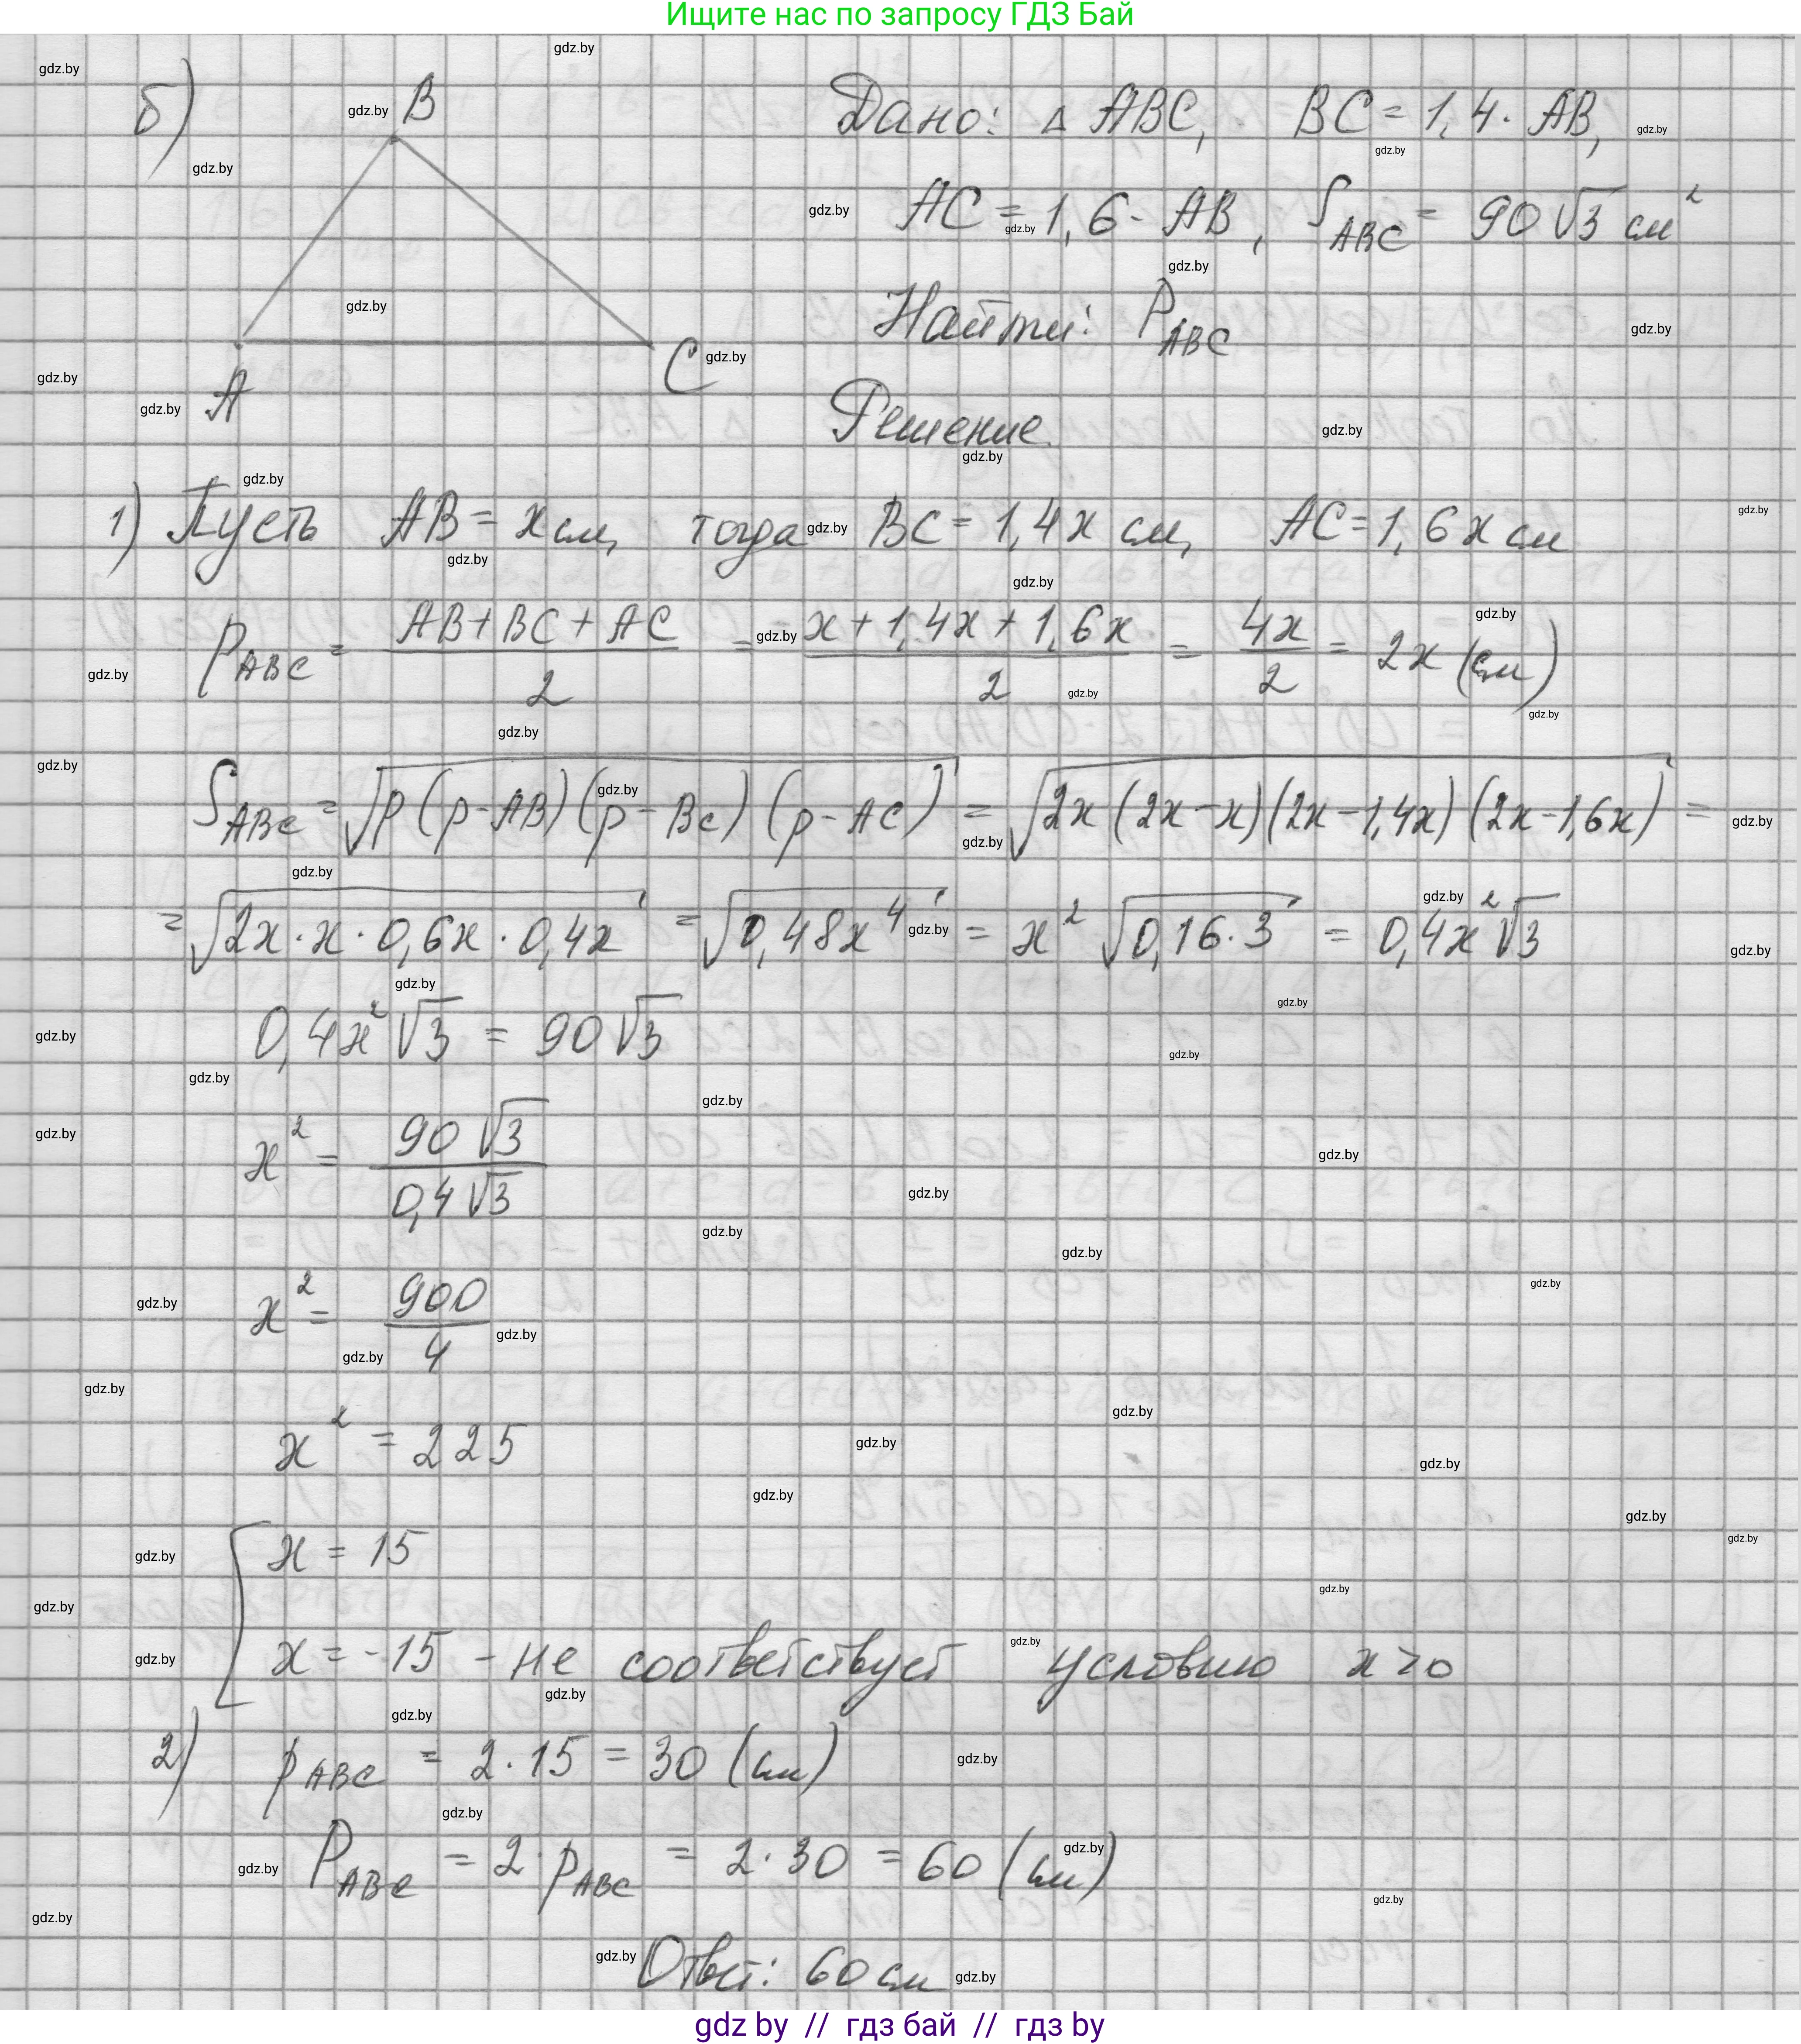 Ищите нас по запросу ГДЗ Бай
б)
B
A
C
Дано: △ ABC, BC = 1,4 · AB,
AC = 1,6 · AB, S_ABC = 90√3 см²
Найти: P_ABC
Решение
1) Пусть AB = x см, тогда BC = 1,4x см, AC = 1,6x см
p_ABC = (AB + BC + AC)/2 = (x + 1,4x + 1,6x)/2 = 4x/2 = 2x (см)
S_ABC = √(p(p-AB)(p-BC)(p-AC)) = √(2x(2x-x)(2x-1,4x)(2x-1,6x)) =
= √(2x · x · 0,6x · 0,4x) = √(0,48x⁴) = x² √(0,16 · 3) = 0,4x²√3
0,4x²√3 = 90√3
x² = 90√3/0,4√3
x² = 900/4
x² = 225
[ x = 15
x = -15 - не соответствует условию x > 0
2) p_ABC = 2 · 15 = 30 (см)
P_ABC = 2 · p_ABC = 2 · 30 = 60 (см)
Ответ: 60 см
gdz by // гдз бай // гдз by